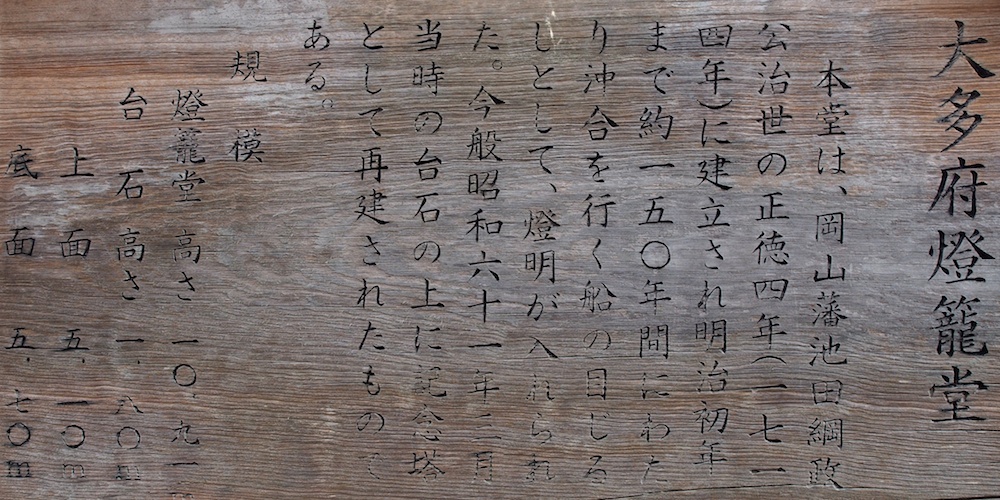 大多府燈籠堂
本堂は、岡山藩池田綱政
公治世の正徳四年(一七一
四年)に建立され明治初年
まで約一五〇年間にわた
り沖合を行く船の目じる
しとして、燈明が入れられ
た。今般昭和六十一年三月
当時の台石の上に記念塔
として再建されたもので
ある。
規模
燈籠堂 高さ 一〇.九一
台石 高さ 一.八〇m
上面 五.一〇m
底面 五.七〇m